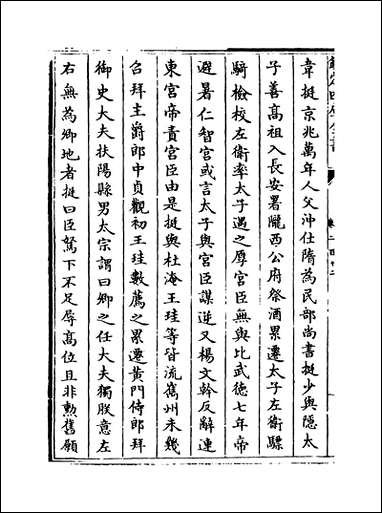 韋挺京兆萬年人父沖仕隋為民部尚書挺少與隱太
子善高祖入長安署隴西公府祭酒累遷太子左衛驃
騎檢校左衛率太子遇之厚宮臣無與比武德七年帝
避暑仁智宮或言太子與宮臣謀逆又楊文幹反辭連
東宮帝責宮臣由是挺與杜淹王珪等皆流嶲州未幾
召拜主爵郎中貞觀初王珪數薦之累遷黃門侍郎拜
御史大夫扶陽縣男太宗謂曰卿之任大夫獨朕意左
右無為卿地者挺曰臣駑下不足辱髙位且非勲舊願